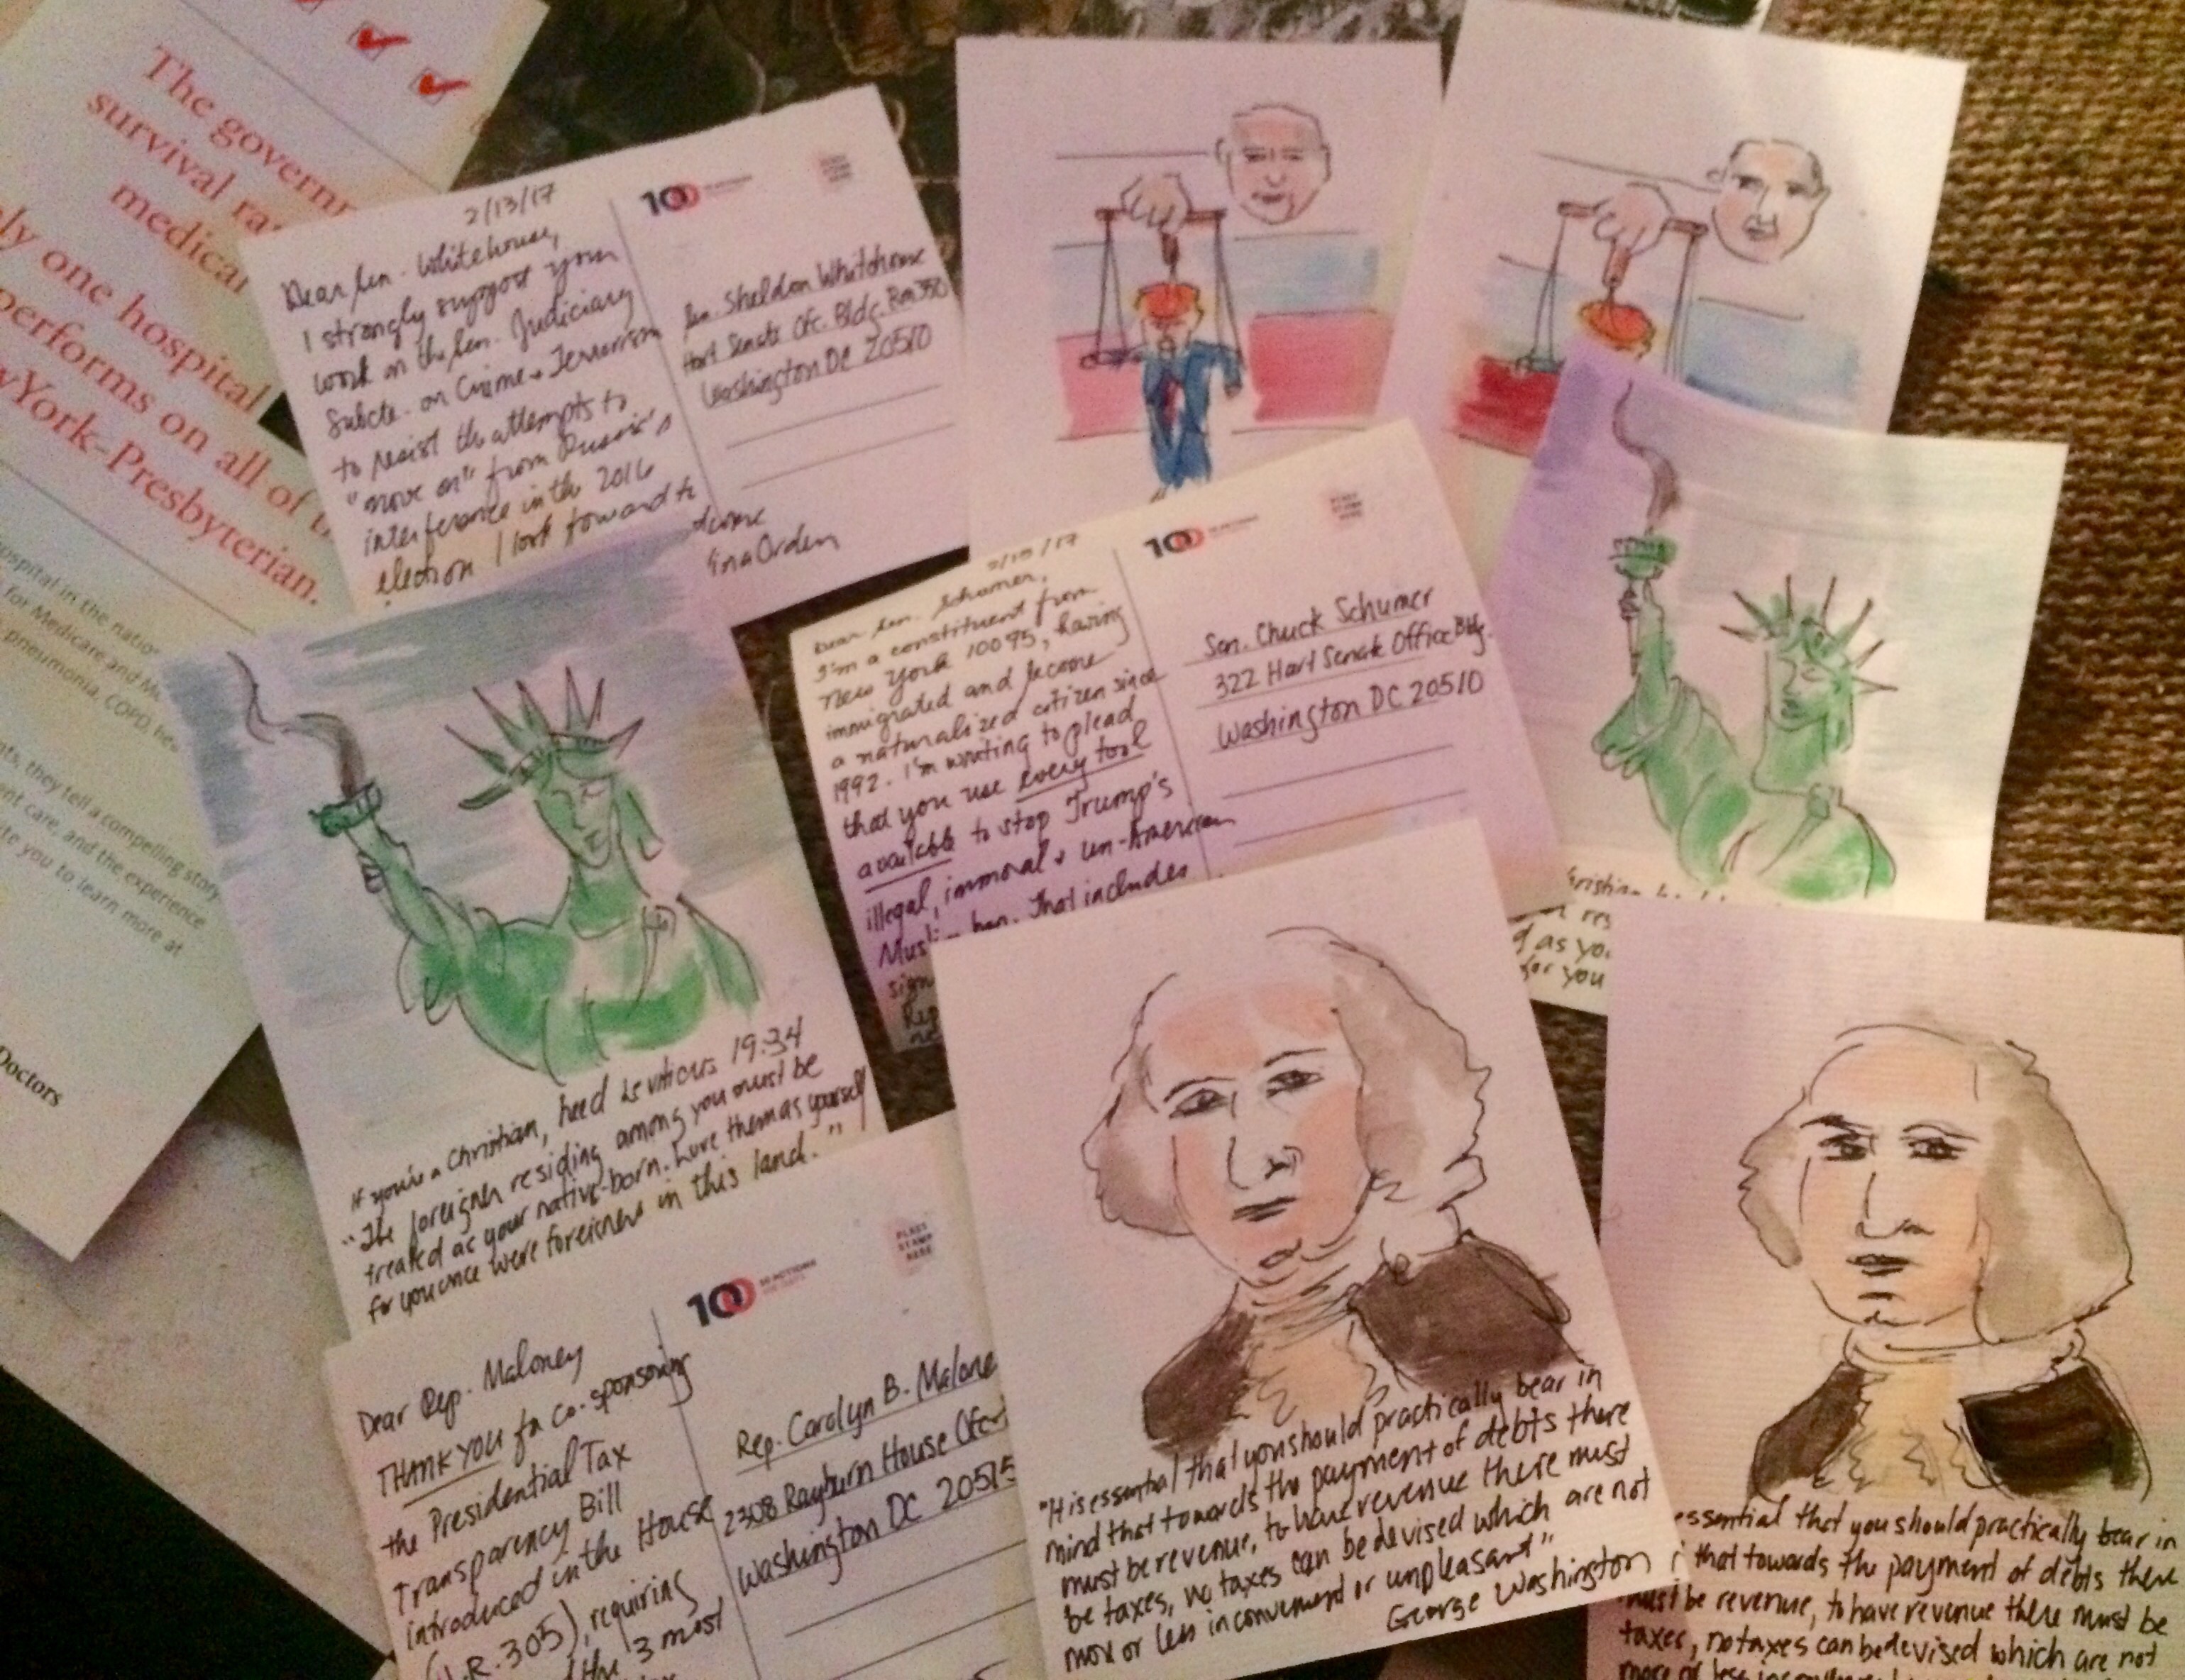 The governm
survival ra
medica
ly one hospital
performs on all of t
wYork-Presbyterian.
ospital in the nation
for Medicare and Me
pneumonia, COPD, he
nts, they tell a compelling story
ent care, and the experience
te you to learn more at
Doctors
2/13/17
Dear Sen. Whitehouse,
I strongly support your
work on the Sen. Judiciary
Subcte. on Crime + Terrorism
to resist the attempts to
"move on" from Russia's
interference in the 2016
election I look forward to
100
Sen. Sheldon Whitehouse
Hart Senate Ofc. Bldg. Rm 530
Washington DC 20510
Orden
Dear Sen. Schumer,
I'm a constituent from
New York 10095, having
immigrated and become
a naturalized citizen since
1992. I'm writing to plead
that you use every tool
available to stop Trump's
illegal, immoral + un-American
Muslim ban. That includes
sign
Rep
100
PLACE
STAMP
HERE
Sen. Chuck Schumer
322 Hart Senate Office Bldg.
Washington DC 20510
If you're a Christian, heed Leviticus 19:34
"The foreigner residing among you must be
treated as your native-born. Love them as yourself
for you once were foreigners in this land."
hristian
res
d as yo
for you
Dear Rep. Maloney
THANK YOU for co-sponsoring
the Presidential Tax
Transparency Bill
introduced in the House
H.R. 305), requiring
the 3 most
100
10 ACTIONS
PLACE
STAMP
HERE
Rep. Carolyn B. Malone
2308 Rayburn House Ofc
Washington DC 20515
"It is essential that you should practically bear in
mind that towards the payment of debts there
must be revenue, to have revenue there must
be taxes, no taxes can be devised which are not
more or less inconvenient or unpleasant"
George Washington
essential that you should practically bear in
that towards the payment of debts there
must be revenue, to have revenue there must be
taxes, no taxes can be devised which are not
more or less inconvenient